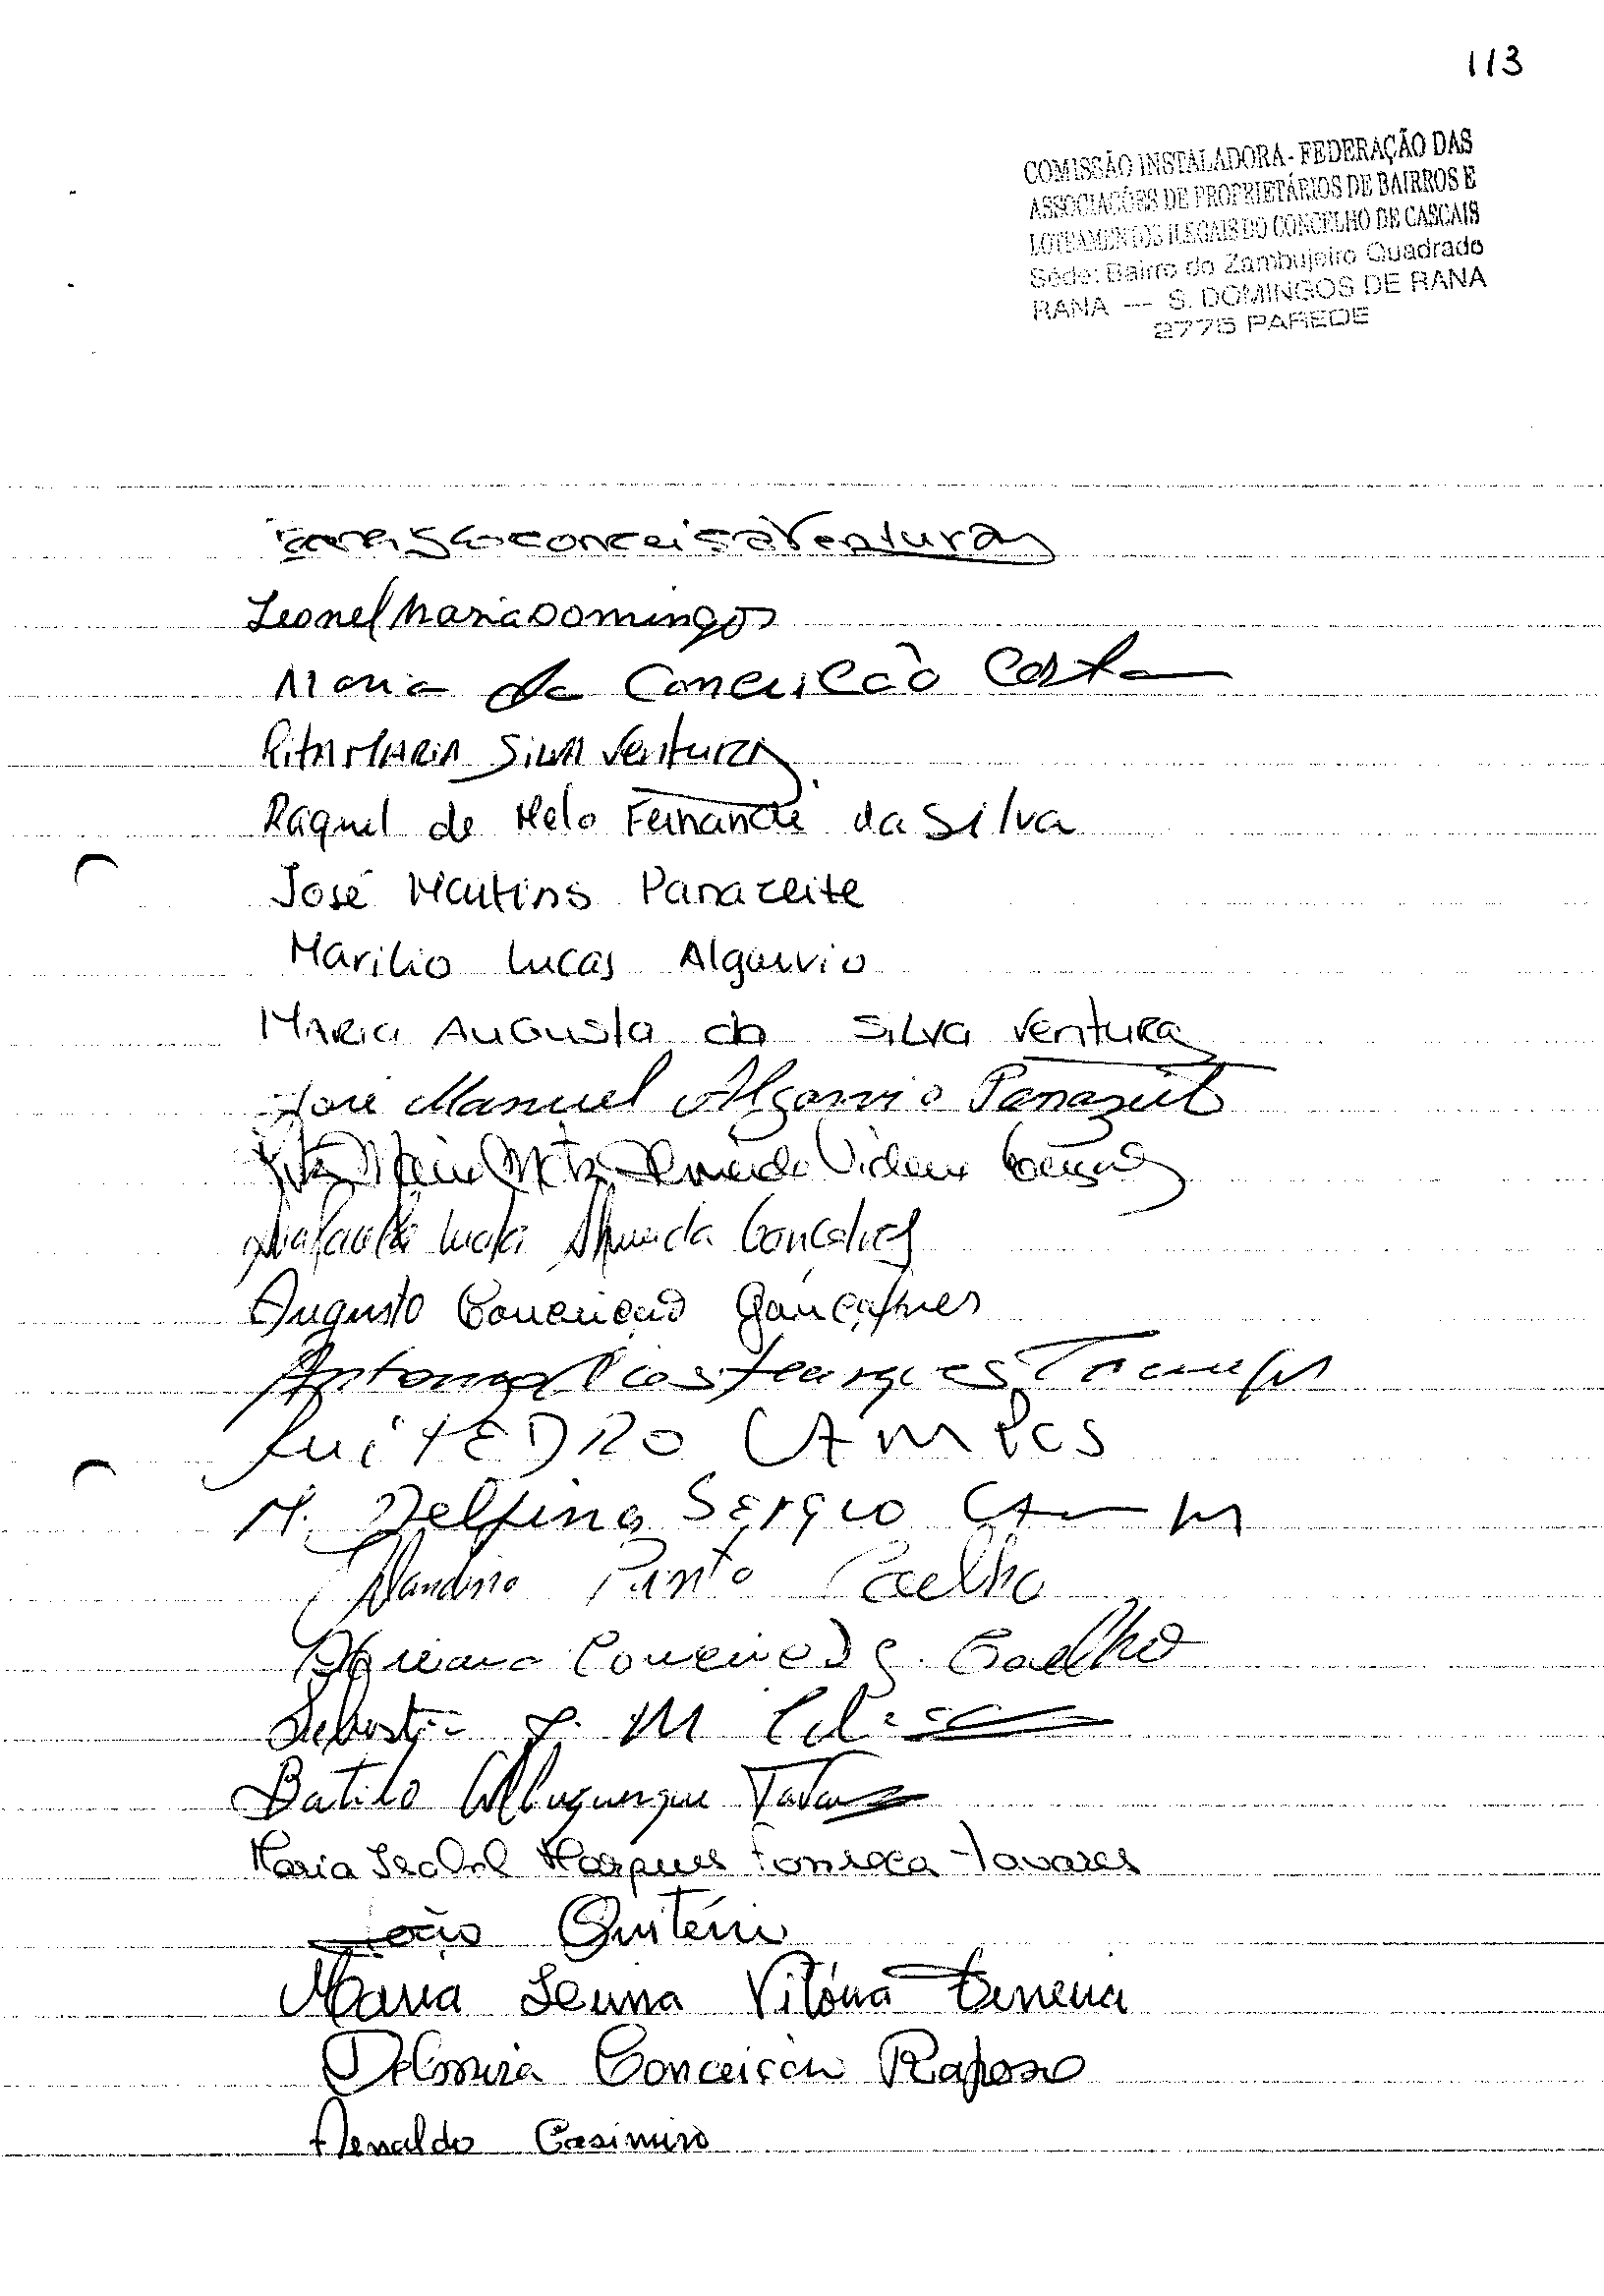 113
COMISSÃO INSTALADORA - FEDERAÇÃO DAS
ASSOCIAÇÕES DE PROPRIETÁRIOS DE BAIRROS E
LOTEAMENTOS ILEGAIS DO CONCELHO DE CASCAIS
Séde: Bairro do Zambujeiro Quadrado
RANA --- S. DOMINGOS DE RANA
2775 PAREDE
conceisão Ventura
Leonel Maria Domingos
Maria da Conceicão Costa
Rita MARIA SILVA Ventura
Raquel de Melo Fernande da Silva
José Martins Panazeite
Marilio Lucas Algarvio
MARIA AUGUSta da SILVA Ventura
José Manuel Algarvio Panazeite
Maria Almeida
Almeida Gonçalves
Augusto Conceição Gonçalves
Antonio
Rui PEDRO CAMPOS
M. Delfina Sergio
Pinto Coelho
Coelho
J. M
Batilo Albuquerque Tavares
Maria Isabel Marques Fonseca Tavares
João Quitério
Maria Vitória
Delmira Conceição Raposo
Arnaldo Casimiro